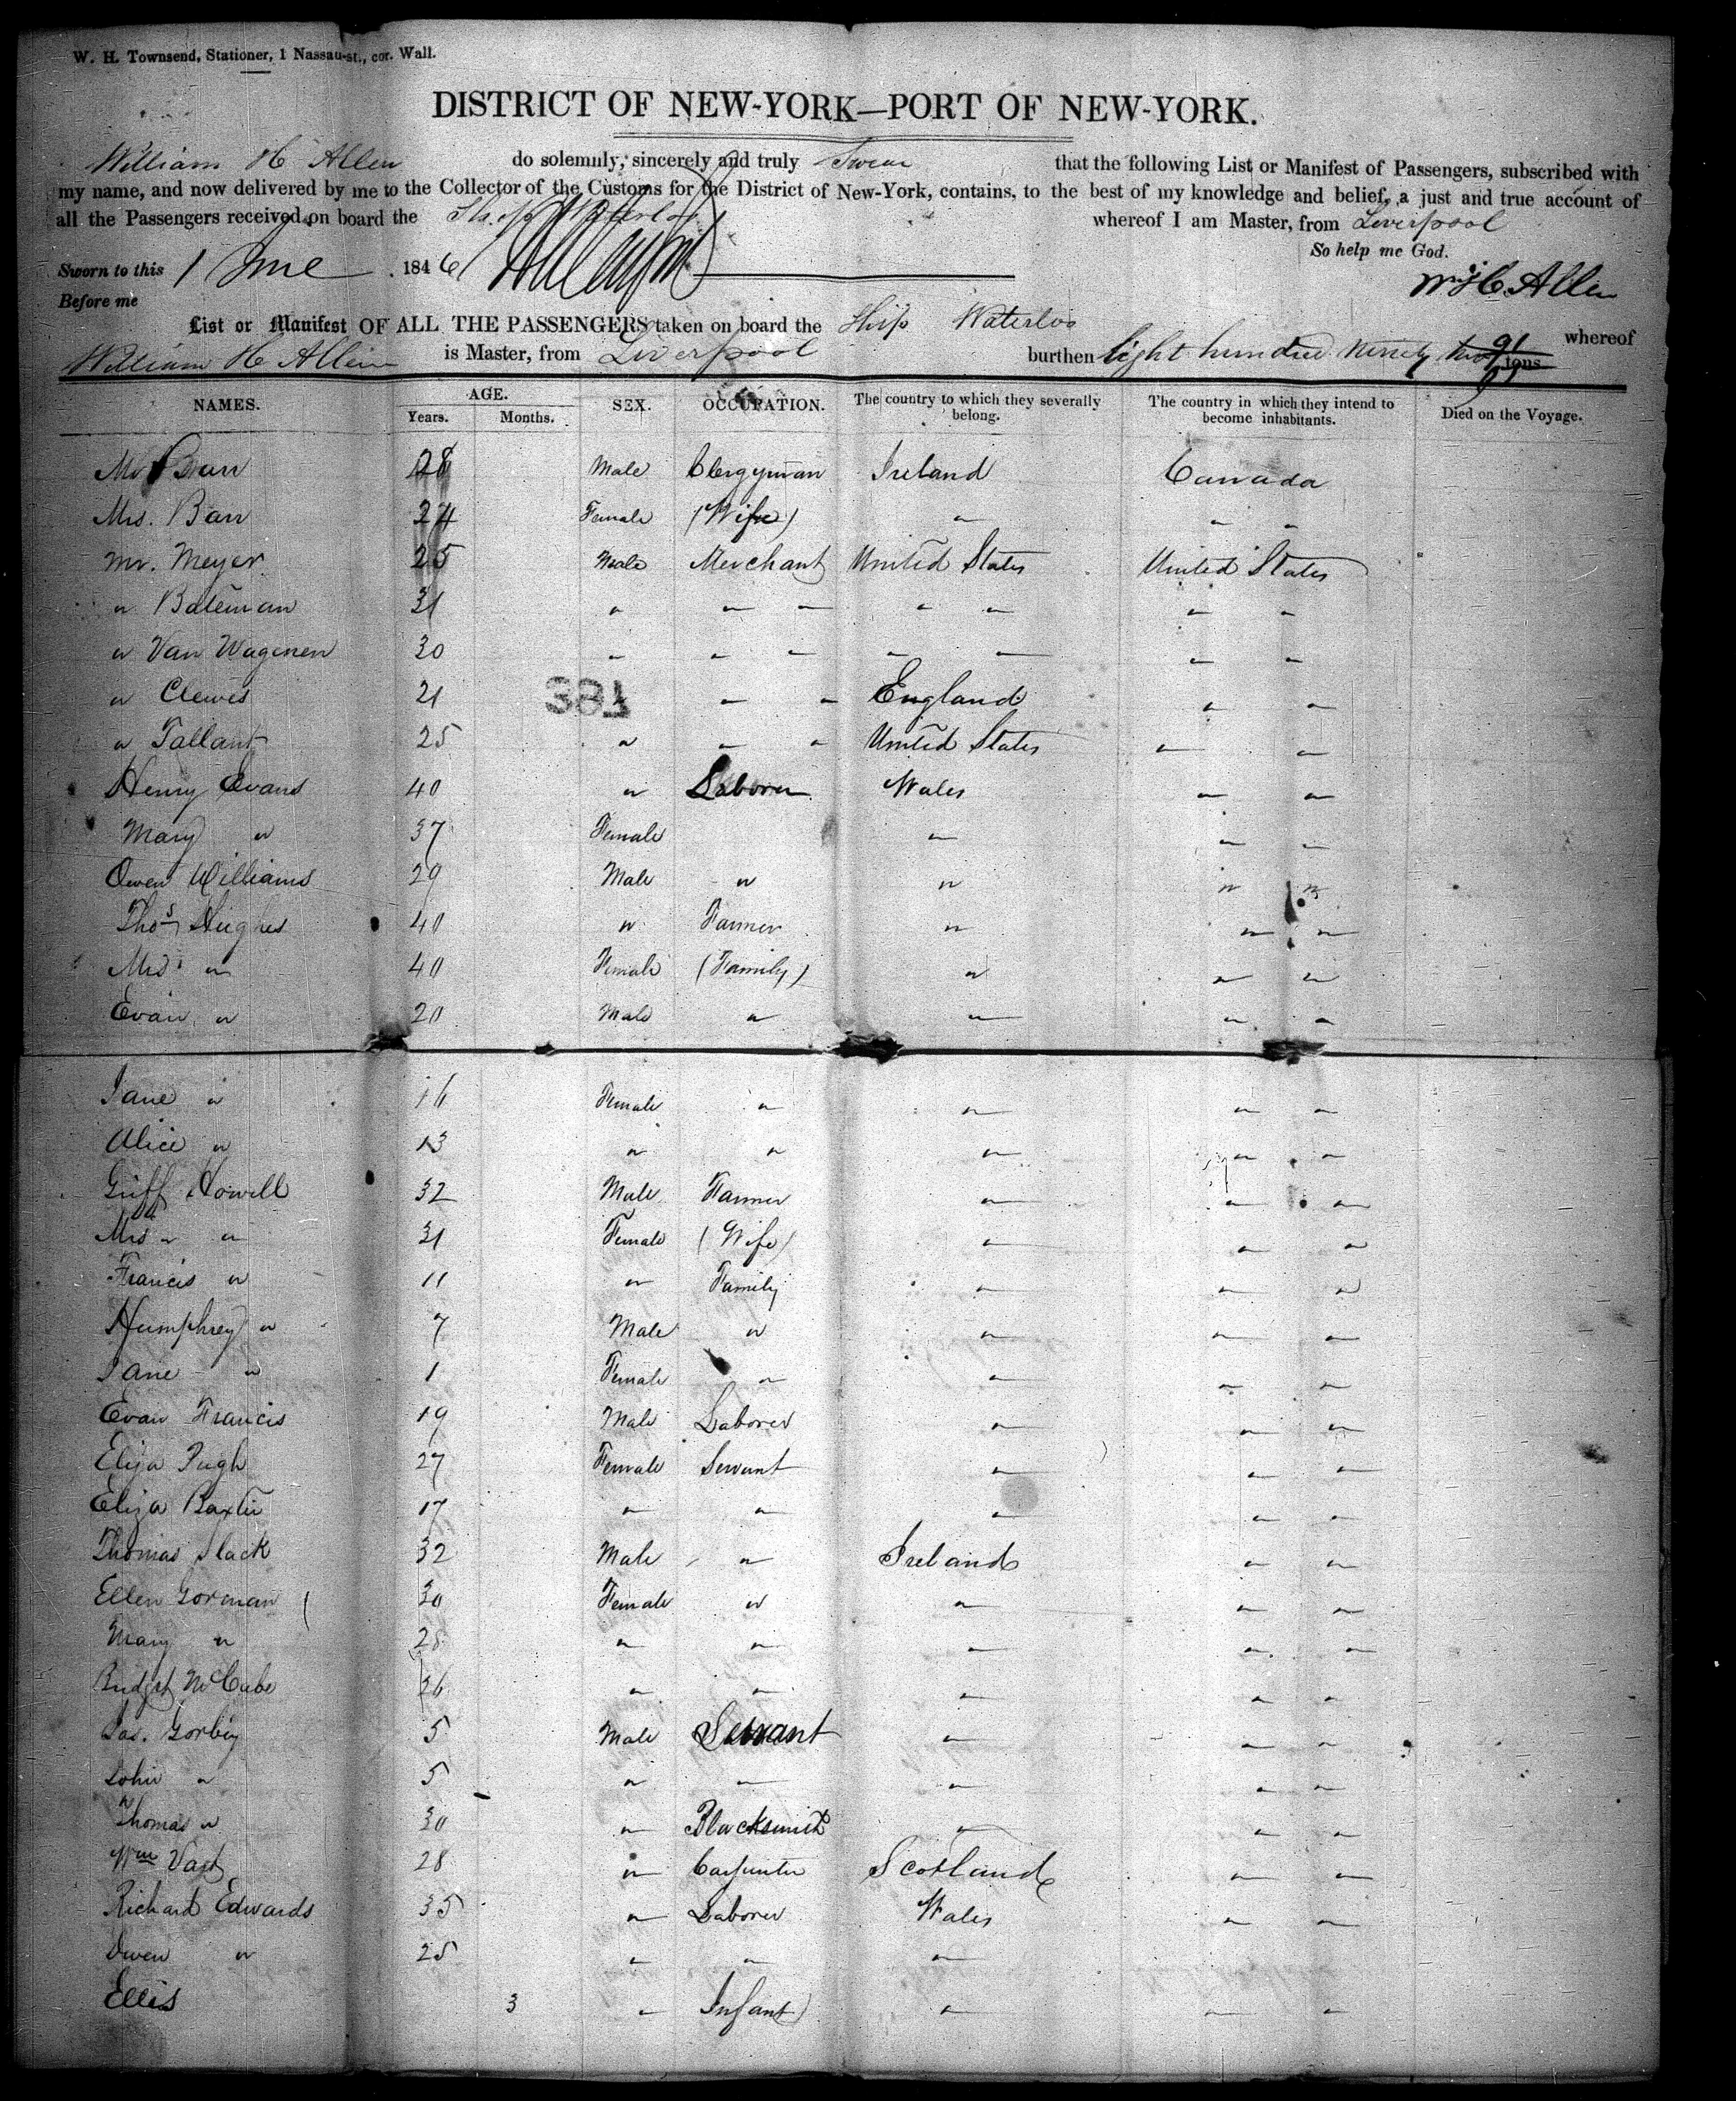 W. H. Townsend, Stationer, 1 Nassau-st., cor. Wall.
DISTRICT OF NEW-YORK—PORT OF NEW-YORK.
William H Allen do solemnly, sincerely and truly Swear that the following List or Manifest of Passengers, subscribed with
my name, and now delivered by me to the Collector of the Customs for the District of New-York, contains, to the best of my knowledge and belief, a just and true account of
all the Passengers received on board the Ship Waterloo whereof I am Master, from Liverpool
So help me God.
Sworn to this 1 June 1846
Wm H. Allen
Before me
List or Manifest OF ALL THE PASSENGERS taken on board the Ship Waterloo whereof
William H Allen is Master, from Liverpool burthen Eight hundred Ninety two 91/95 tons
NAMES. AGE. SEX. OCCUPATION. The country to which they severally belong. The country in which they intend to become inhabitants. Died on the Voyage.
Years. Months.
Mr Barr 28 Male Clergyman Ireland Canada
Mrs. Barr 24 Female (Wife) " " "
Mr. Meyer 25 Male Merchant United States United States
" Bateman 31 " " " " " " "
" Van Wagenen 30 " " " " " " "
" Clewes 21 " " " England " "
381
" Tallant 25 " " " United States " "
Henry Evans 40 " Laborer Wales " "
Mary " 37 Female " " "
Owen Williams 29 Male " " " "
Thos Hughes 40 " Farmer " " "
Mrs " 40 Female (Family) " " "
Evan " 20 Male " " " "
Jane " 16 Female " " " "
Alice " 13 " " " " "
Griff Howell 32 Male Farmer " " "
Mrs " " 31 Female (Wife) " " "
Francis " 11 " Family " " "
Humphrey " 7 Male " " " "
Jane " 1 Female " " " "
Evan Francis 19 Male Laborer " " "
Eliza Pugh 27 Female Servant " " "
Eliza Baxter 17 " " " " "
Thomas Slack 32 Male " Ireland " "
Ellen Gorman 30 Female " " " "
Mary " 28 " " " " "
Bridget McCabe 26 " " " " "
Jas. Gorbey 5 Male Servant " " "
John " 5 " " " " "
Thomas " 30 " Blacksmith " " "
Wm 28 " Carpenter Scotland " "
Richard Edwards 35 " Laborer Wales " "
Owen " 25 " " " " "
Ellis 3 " Infant " " "